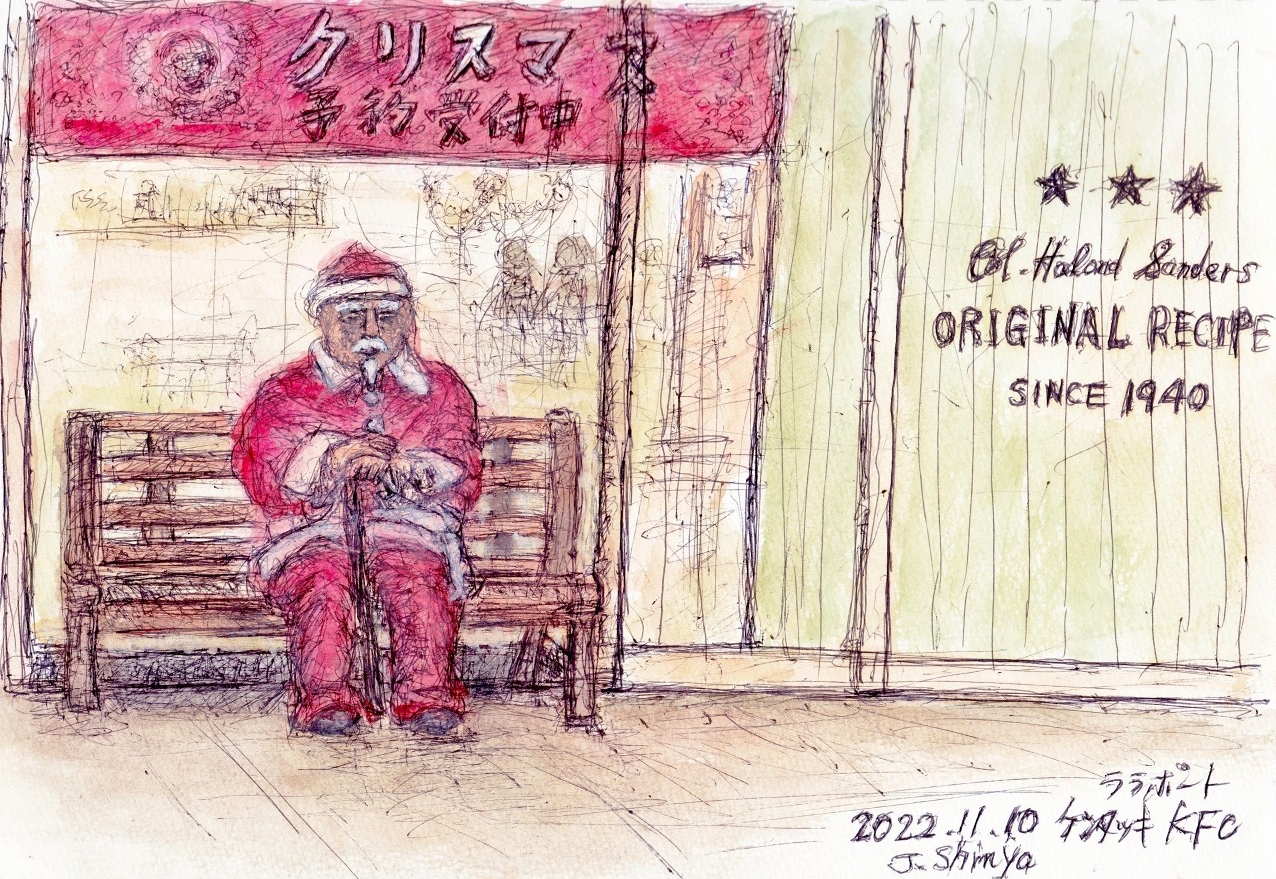 クリスマス
予約受付中
Ol. Haland Sanders
ORIGINAL RECIPE
SINCE 1940
ララポート
2022.11.10 ケンタッキ KFC
J. Shinya